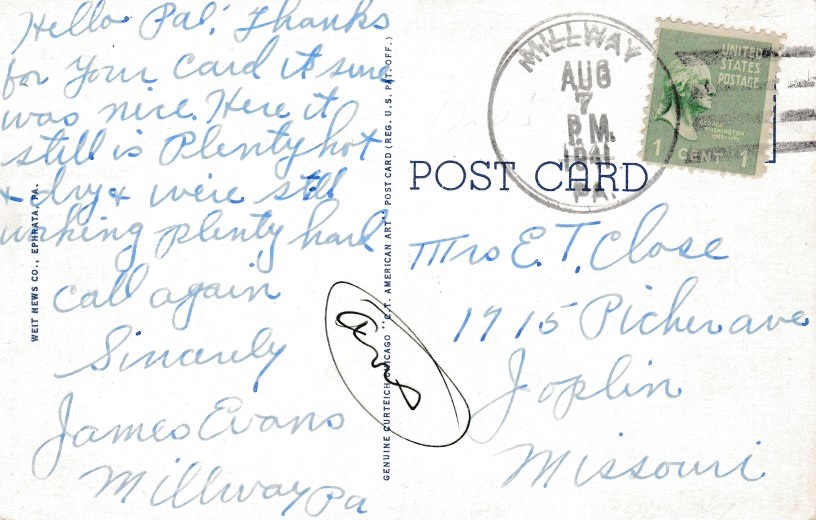 Hello Pal; Thanks
for your card it sure
was nice. Here it
still is Plenty hot
& dry & were still
working plenty hard
call again
Sincerly
James Evans
Millway Pa
WEIT NEWS CO., EPHRATA, PA.
GENUINE CURTEICH-CHICAGO "C.T. AMERICAN ART" POST CARD (REG. U.S. PAT. OFF.)
MILLWAY
AUG
7
P.M.
1941
PA.
UNITED
STATES
POSTAGE
1 CENT 1
POST CARD
Mrs E. T. Close
1715 Picher ave
Joplin
Missouri